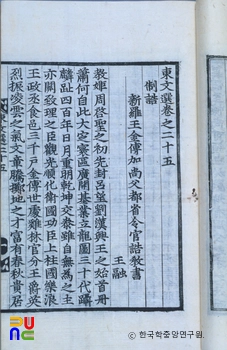 東文選卷之二十五
制誥
新羅王金傅加尙父都省令官誥敎書
王融
敎姬周啓聖之初先封呂望劉漢興王之始首冊
蕭何自此大定寰區廣開基業立龍圖三十代躡
麟趾四百年日月重明乾坤交泰雖自無爲之主
亦關致理之臣觀光順化衛國功臣上柱國樂浪
王政丞食邑三千戶金傅世處雞林官分王爵英
烈振凌雲之氣文章騰擲地之才富有春秋貴居
한국학중앙연구원